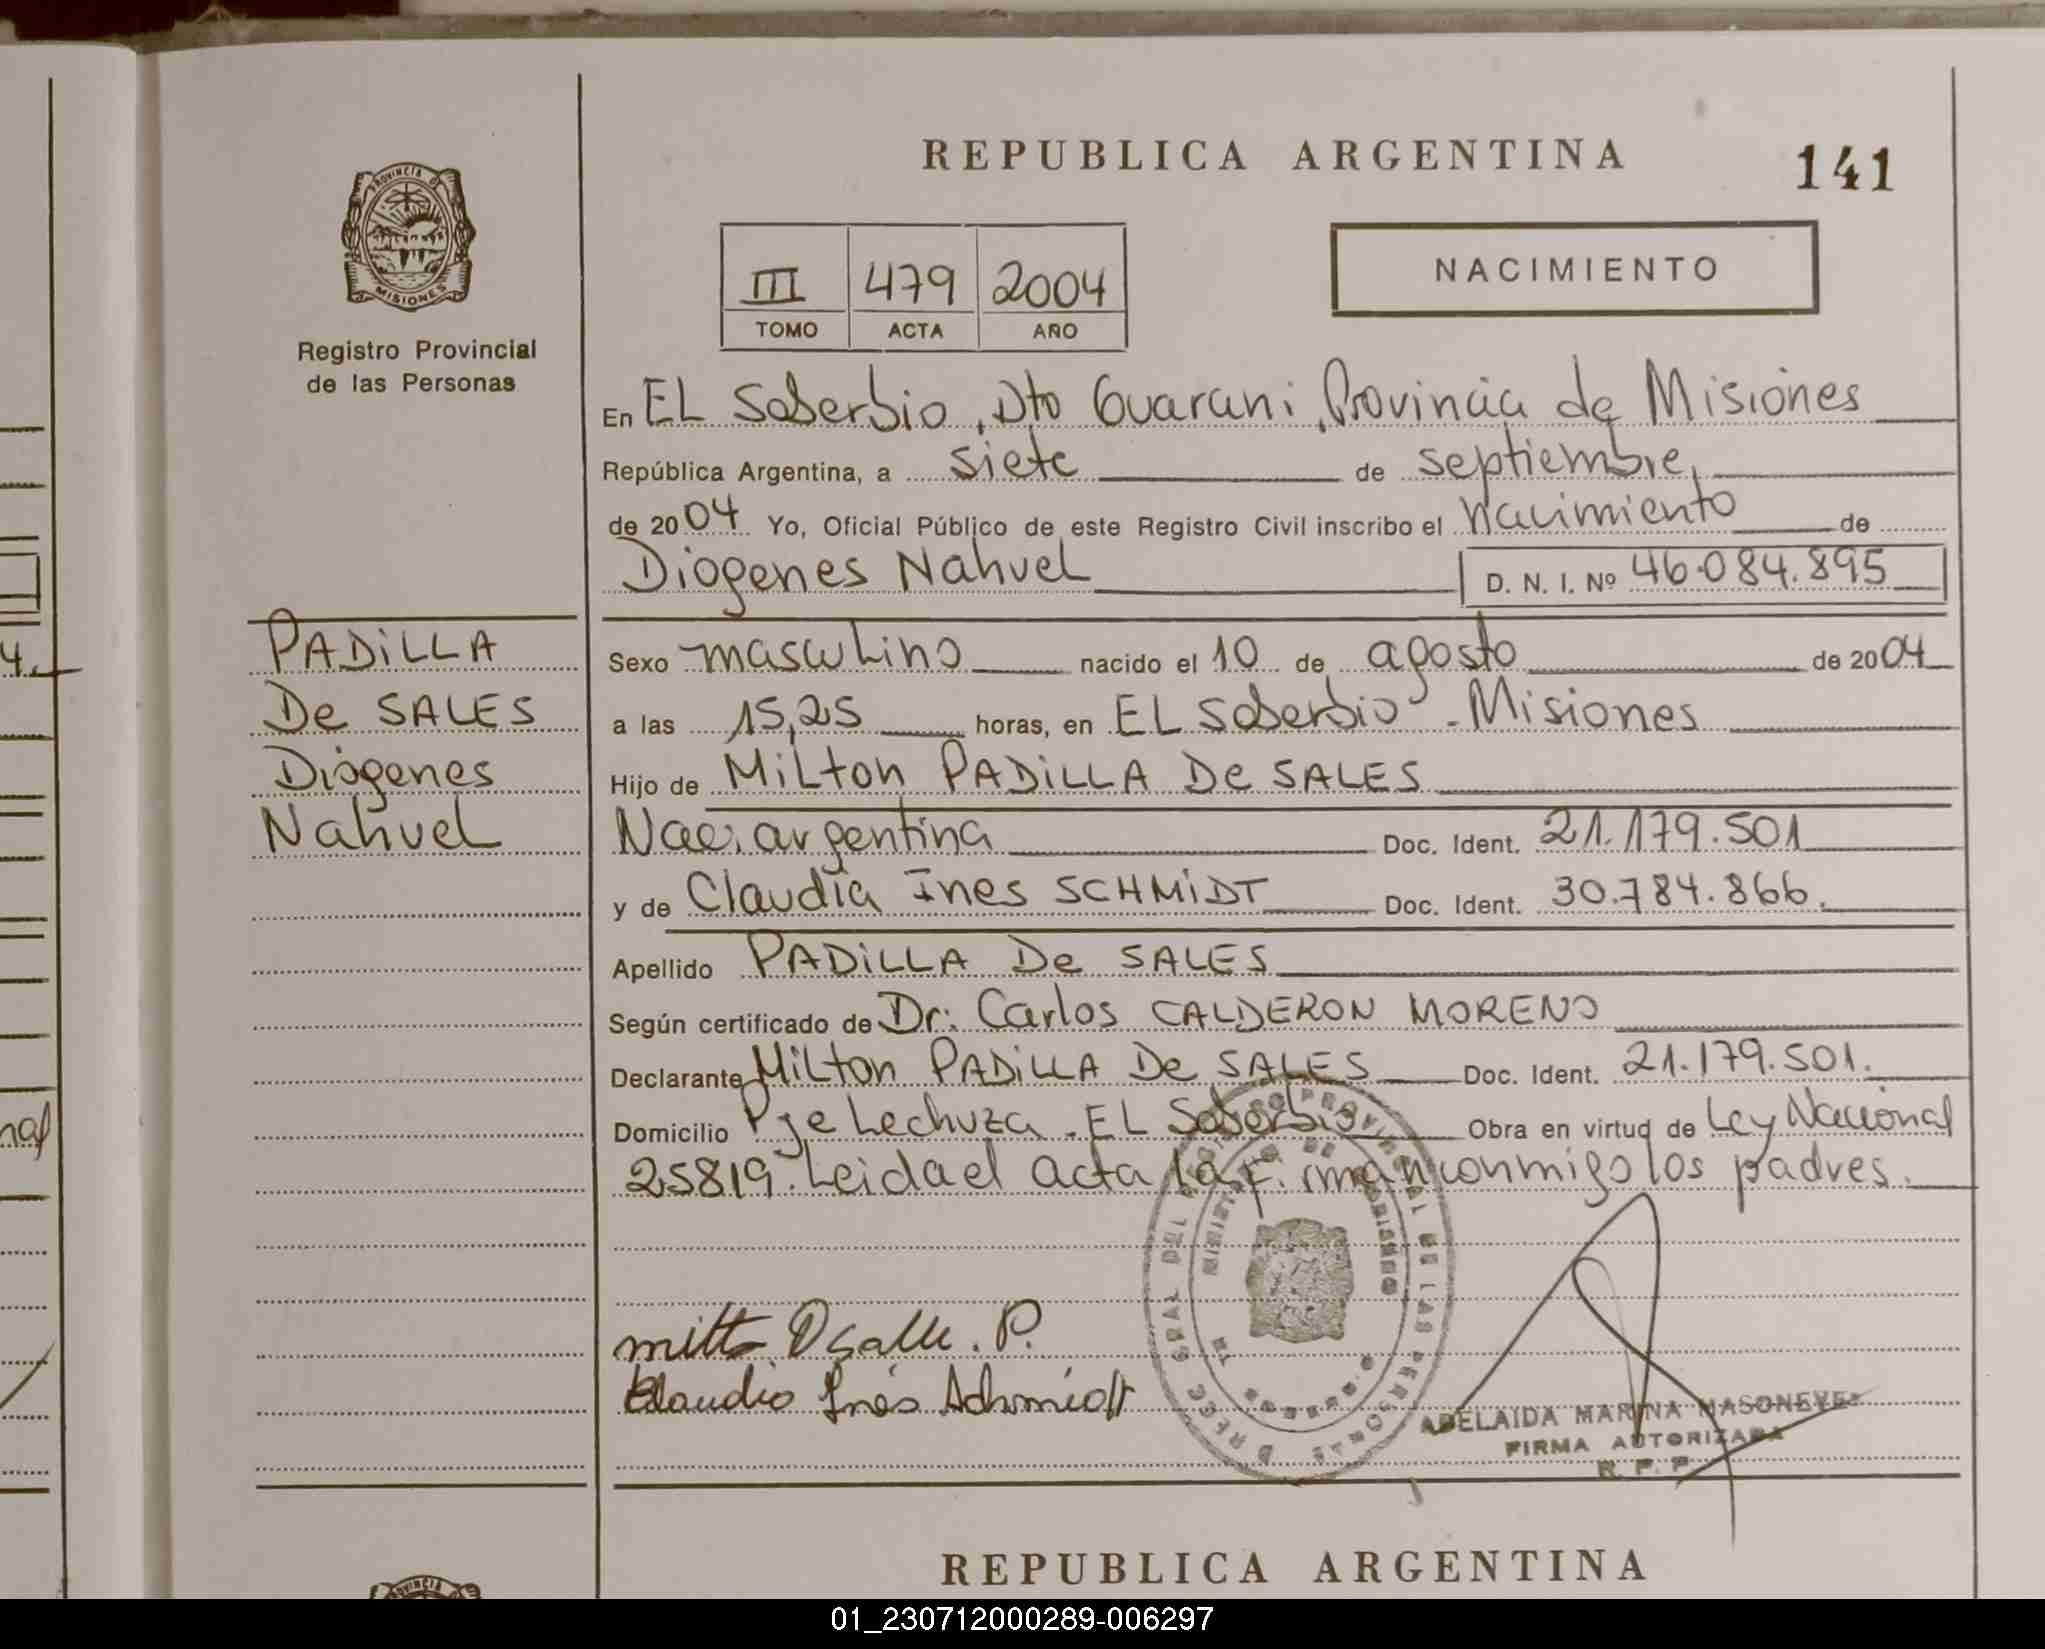 REPUBLICA ARGENTINA
141
PROVINCIA DE
MISIONES
Registro Provincial
de las Personas
III 479 2004
TOMO ACTA AÑO
NACIMIENTO
En EL Soberbio, Dto Guarani, Provincia de Misiones
República Argentina, a siete de septiembre,
de 2004 Yo, Oficial Público de este Registro Civil inscribo el nacimiento de
Diogenes Nahuel D. N. I. Nº 46.084.895
PADiLLA
De SALES
Diogenes
Nahuel
Sexo masculino nacido el 10 de agosto de 2004
a las 15,25 horas, en EL Soberbio - Misiones
Hijo de Milton PADiLLA De SALES
Nac. argentina Doc. Ident. 21.179.501
y de Claudia Ines SCHMiDT Doc. Ident. 30.784.866.
Apellido PADiLLA De SALES
Según certificado de Dr: Carlos CALDERON MORENO
Declarante Milton PADiLLA De SALES Doc. Ident. 21.179.501.
Domicilio Pje Lechuza - EL Soberbio Obra en virtud de Ley Nacional
25819. Leida el acta la firman conmigo los padres.
Claudia Inés Schmidt
ADELAIDA MARINA
FIRMA AUTORIZADA
R. P. P.
REPUBLICA ARGENTINA
01_230712000289-006297